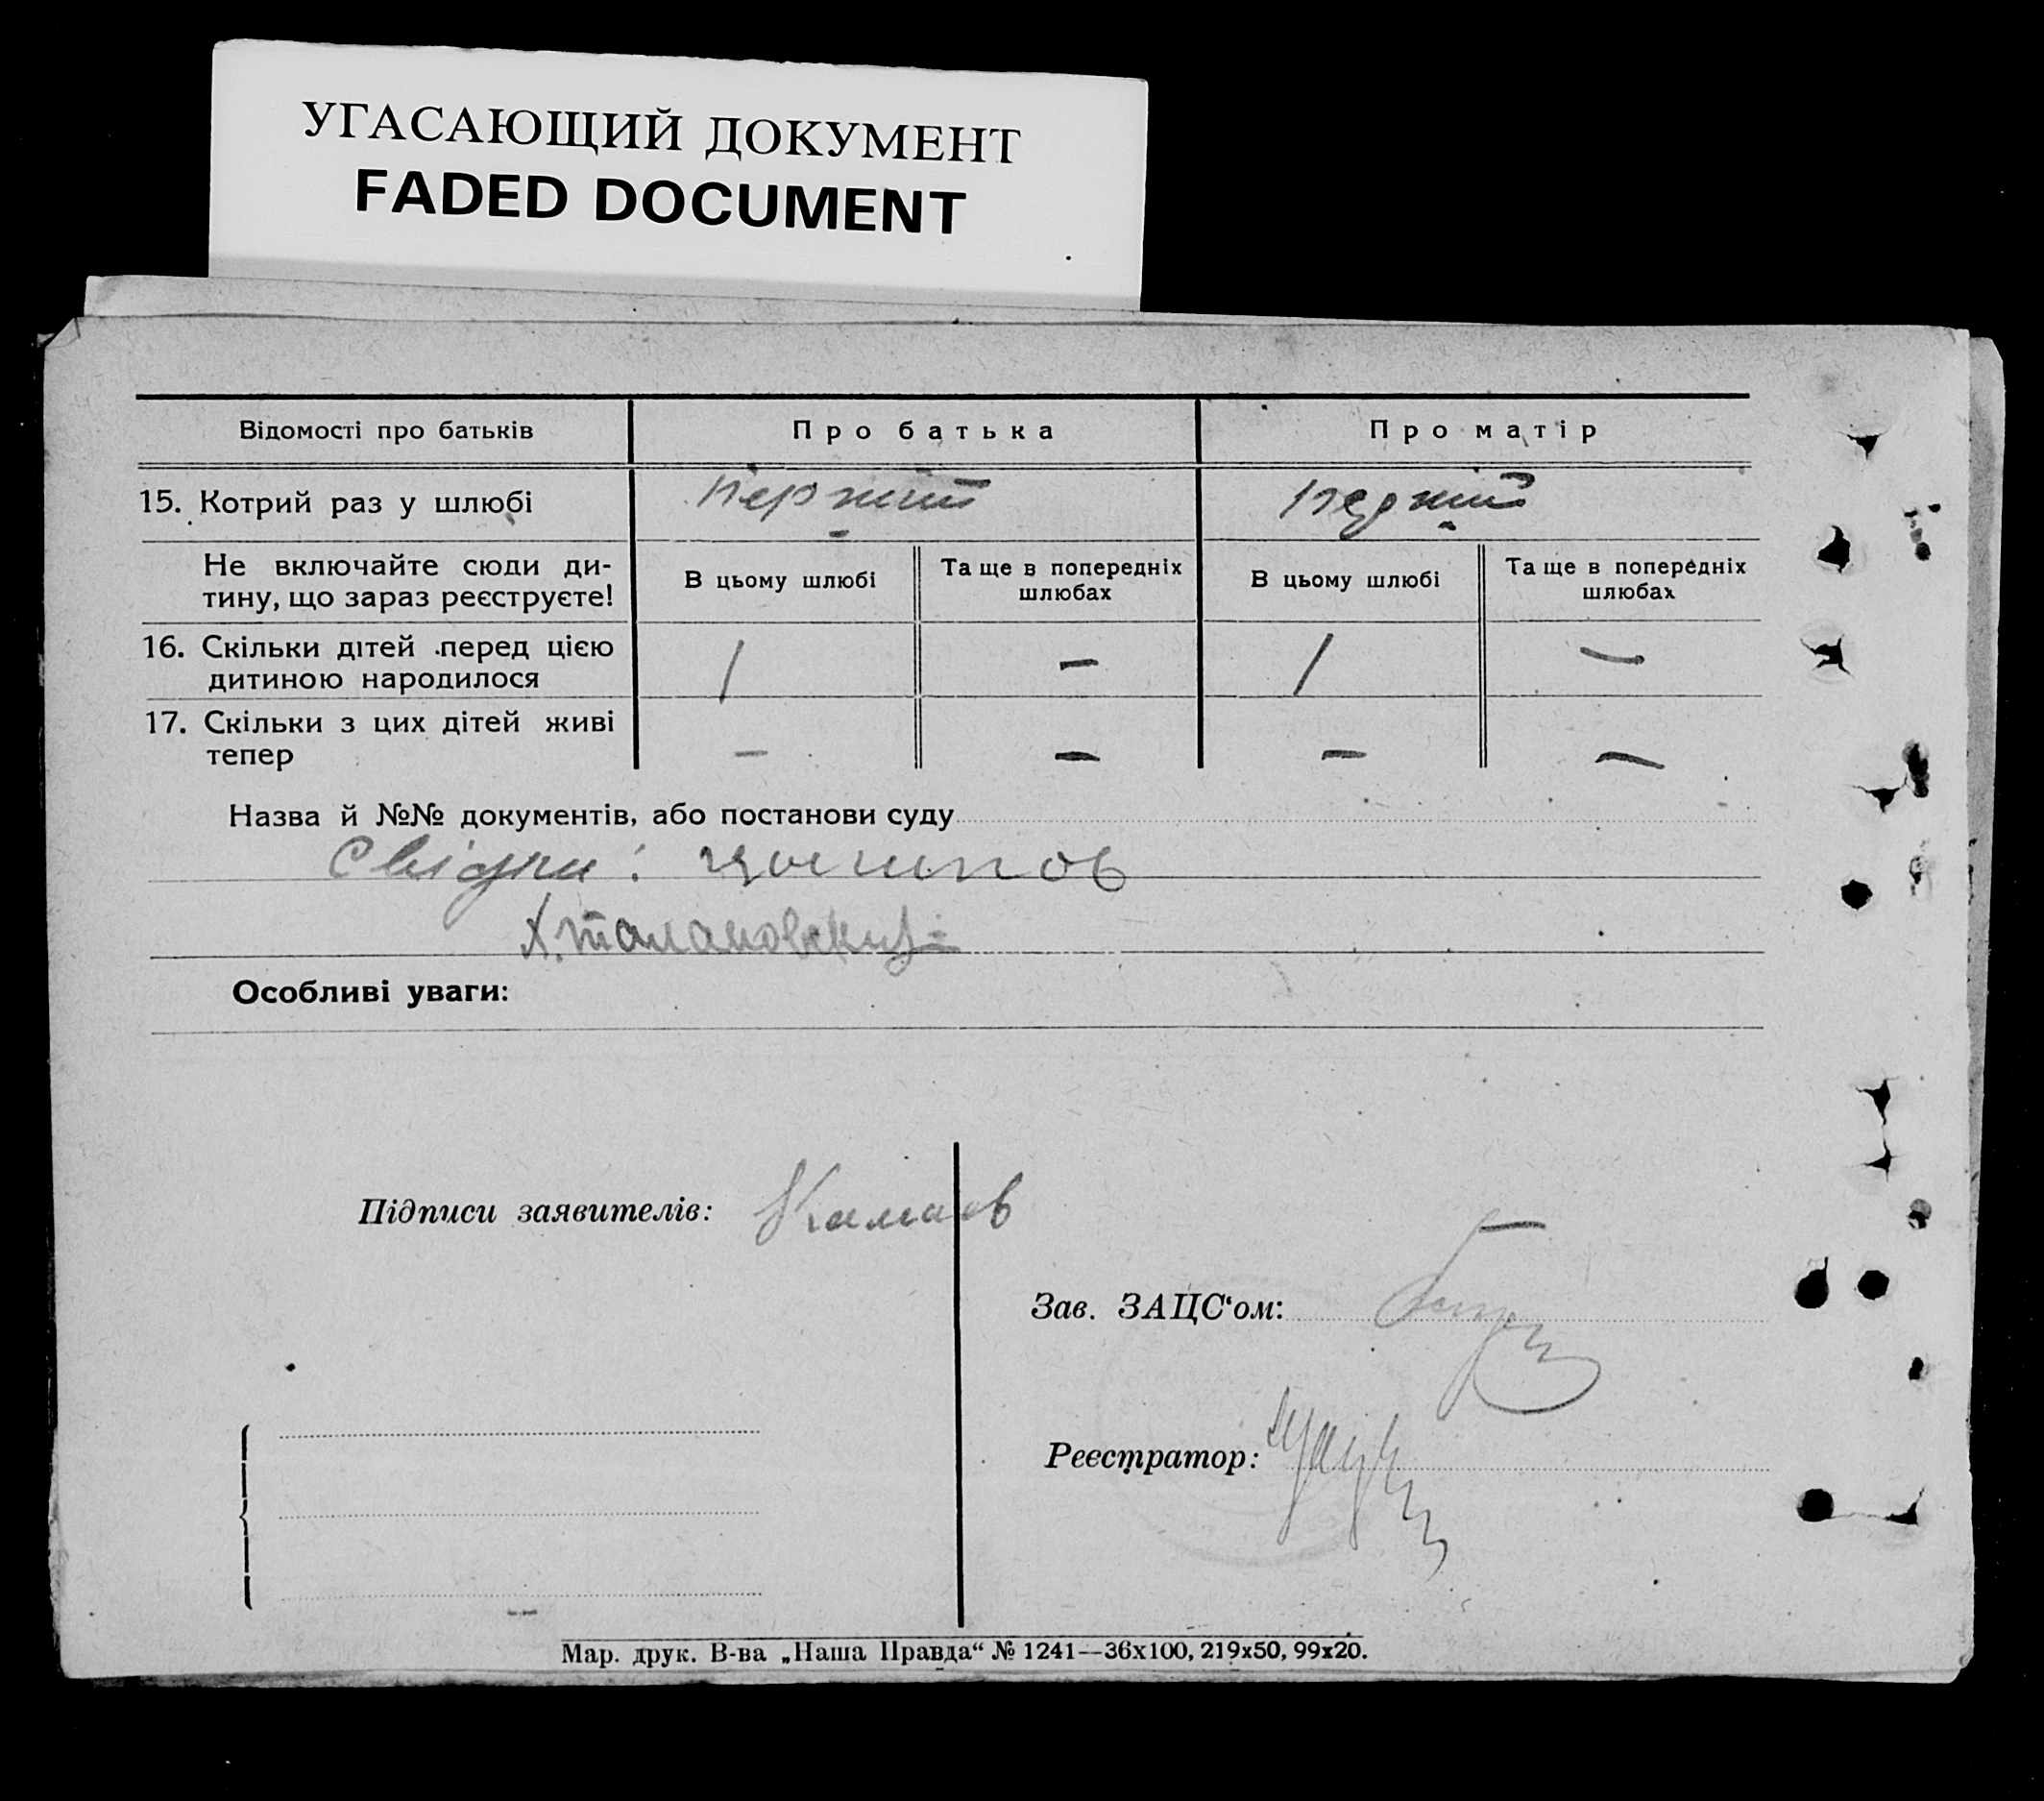 УГАСАЮЩИЙ ДОКУМЕНТ
FADED DOCUMENT
Відомості про батьків Про батька Про матір
15. Котрий раз у шлюбі
Не включайте сюди ди-
тину, що зараз реєструєте!
В цьому шлюбі Та ще в попередніх шлюбах В цьому шлюбі Та ще в попередніх шлюбах
16. Скільки дітей перед цією
дитиною народилося 1 — 1 —
17. Скільки з цих дітей живі
тепер — — — —
Назва й №№ документів, або постанови суду
Свідки:
Особливі уваги:
Підписи заявителів:
Зав. ЗАЦС‘ом:
Реєстратор:
Мар. друк. В-ва „Наша Правда“ № 1241—36х100, 219х50, 99х20.